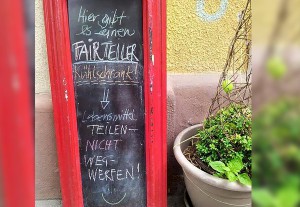 Hier gibt
es einen
FAIRTEILER
Kühlschrank!
Lebensmittel
TEILEN-
NICHT
WEG-
WERFEN!